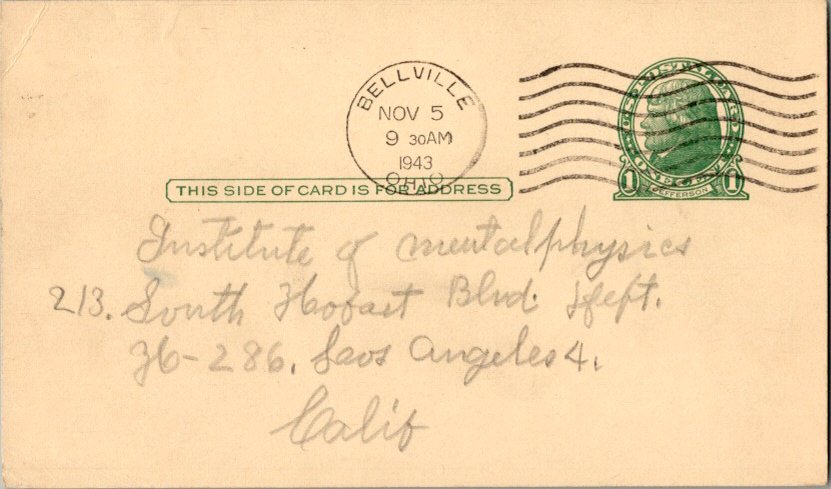 BELLVILLE
NOV 5
9 30AM
1943
OHIO
U·S·POSTAL CARD
ONE CENT
1 JEFFERSON 1
THIS SIDE OF CARD IS FOR ADDRESS
Institute of mentalphysics
213. South Hobart Blvd. Dept.
J6-286. Laos Angeles 4.
Calif